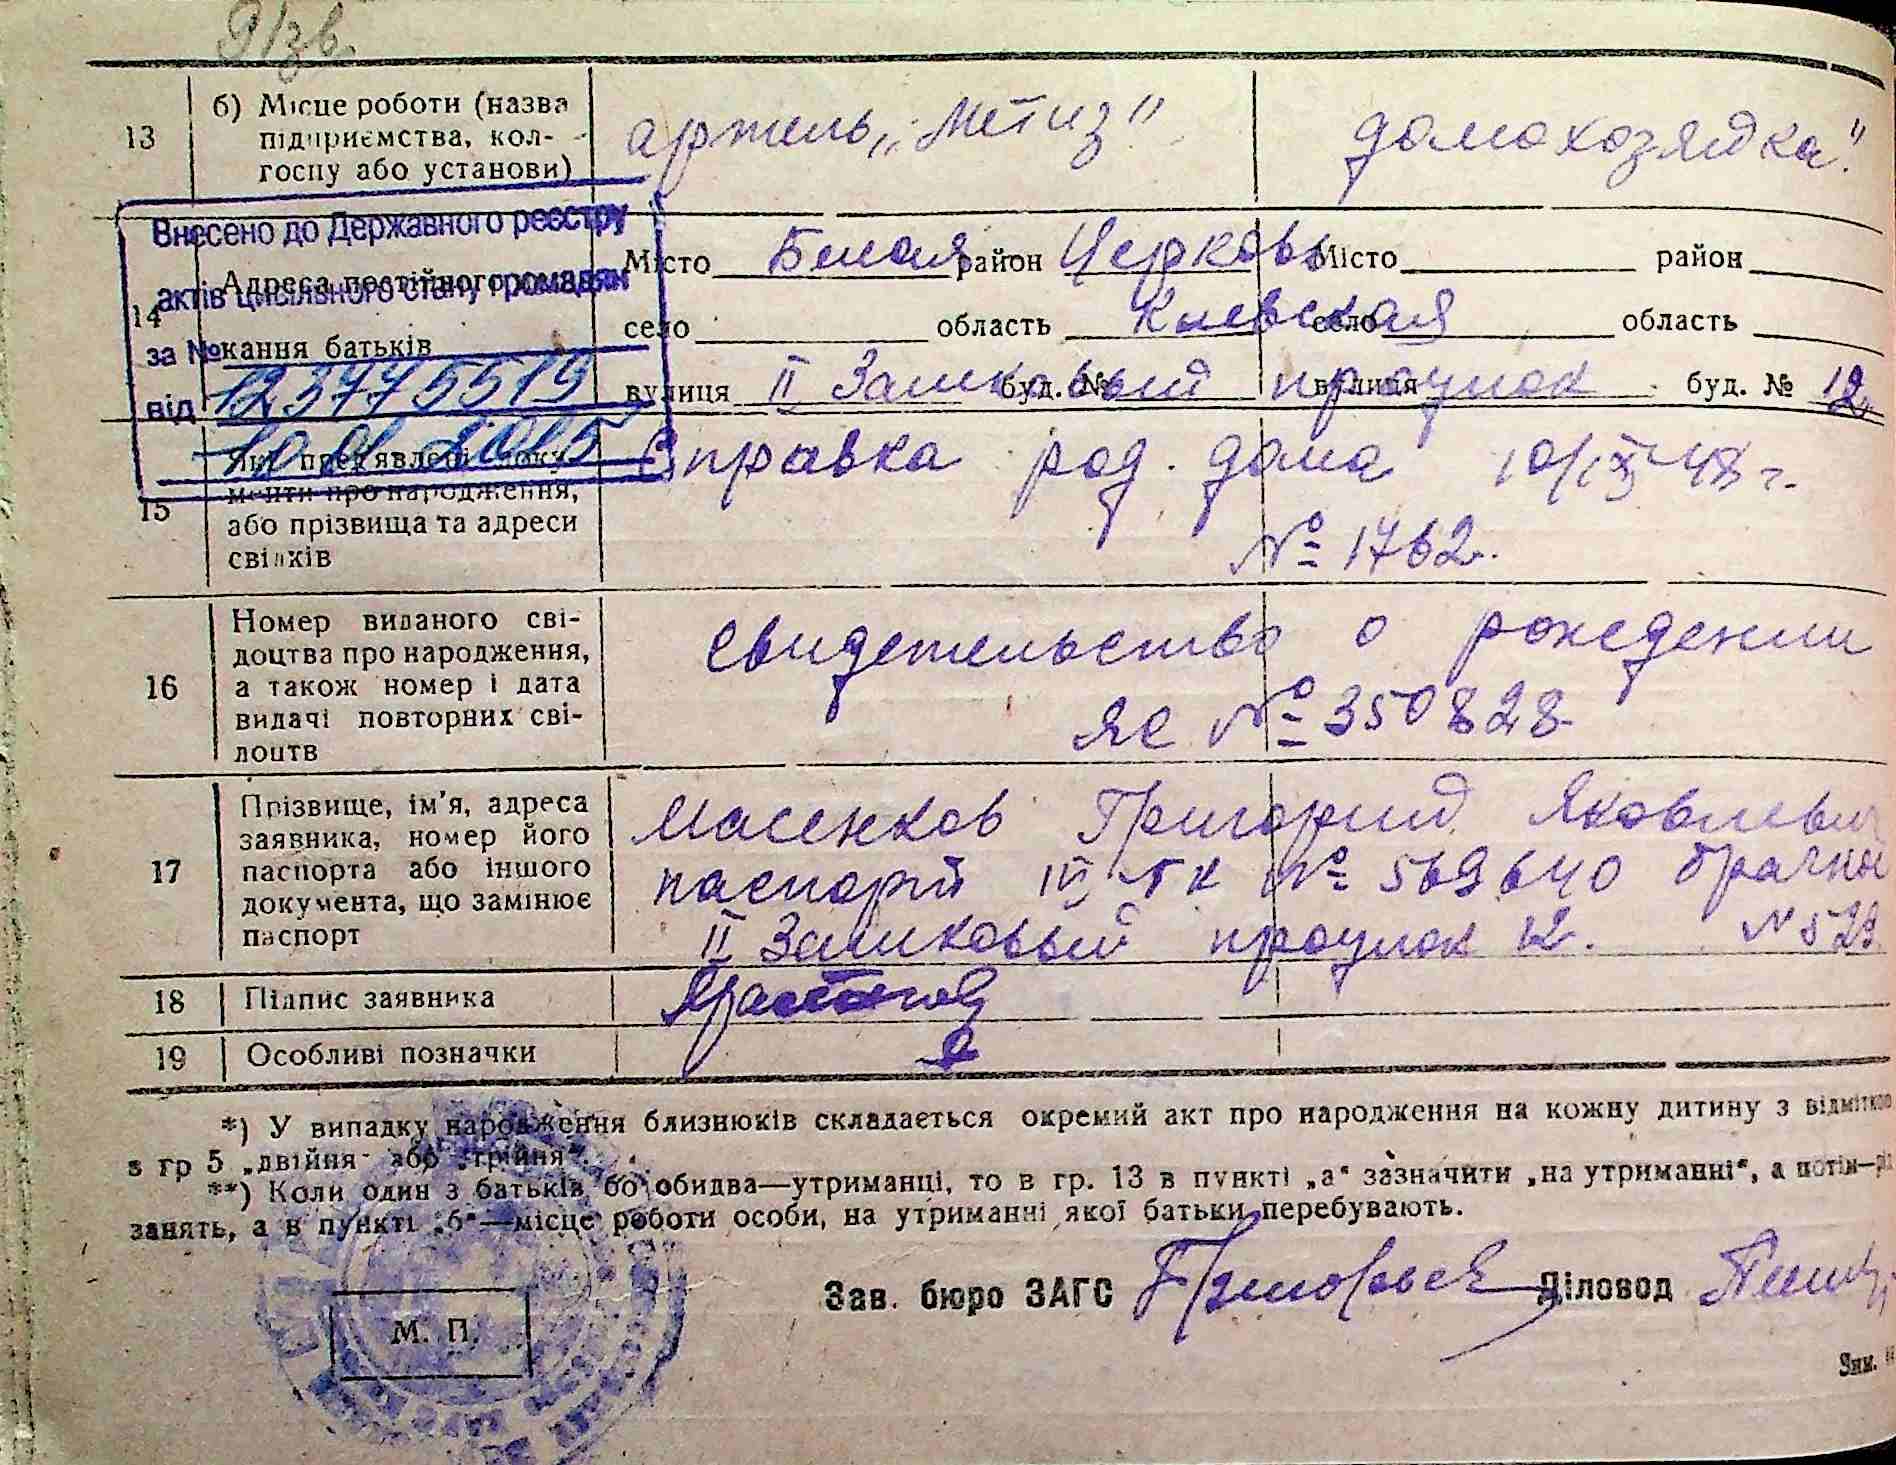 91зв.
13
б) Місце роботи (назва
підприємства, кол-
госпу або установи)
артель „Метиз"
домохозяйка"
Внесено до Державного реєстру
актів цивільного стану громадян
за №
123775519
від
10 01 2015
14
Адреса постійного
кання батьків
Місто Белая район Церковь
село область Киевская
вулиця II Замковый буд. № проулок
Місто район
село область
вулиця буд. № 12
15
Які пред'явлені доку-
менти про народження,
або прізвища та адреси
свідків
Справка род. дома 10/IX 48 г.
№ 1762.
16
Номер виданого сві-
доцтва про народження,
а також номер і дата
видачі повторних сві-
доцтв
свидетельство о рождении
ЯС № 350828
17
Прізвище, ім'я, адреса
заявника, номер його
паспорта або іншого
документа, що замінює
паспорт
Масенков Григорий Яковлевич
паспорт IV № 569640
II Замковый проулок 12. № 529
18
Підпис заявника
19
Особливі позначки
*) У випадку народження близнюків складається окремий акт про народження на кожну дитину з відміткою
в гр 5 „двійня" або „трійня".
**) Коли один з батьків бо обидва—утриманці, то в гр. 13 в пункті „а" зазначити „на утриманні", а потім—рід
занять, а в пункті „б"—місце роботи особи, на утриманні якої батьки перебувають.
Зав. бюро ЗАГС
Діловод
М. П.
Зам.